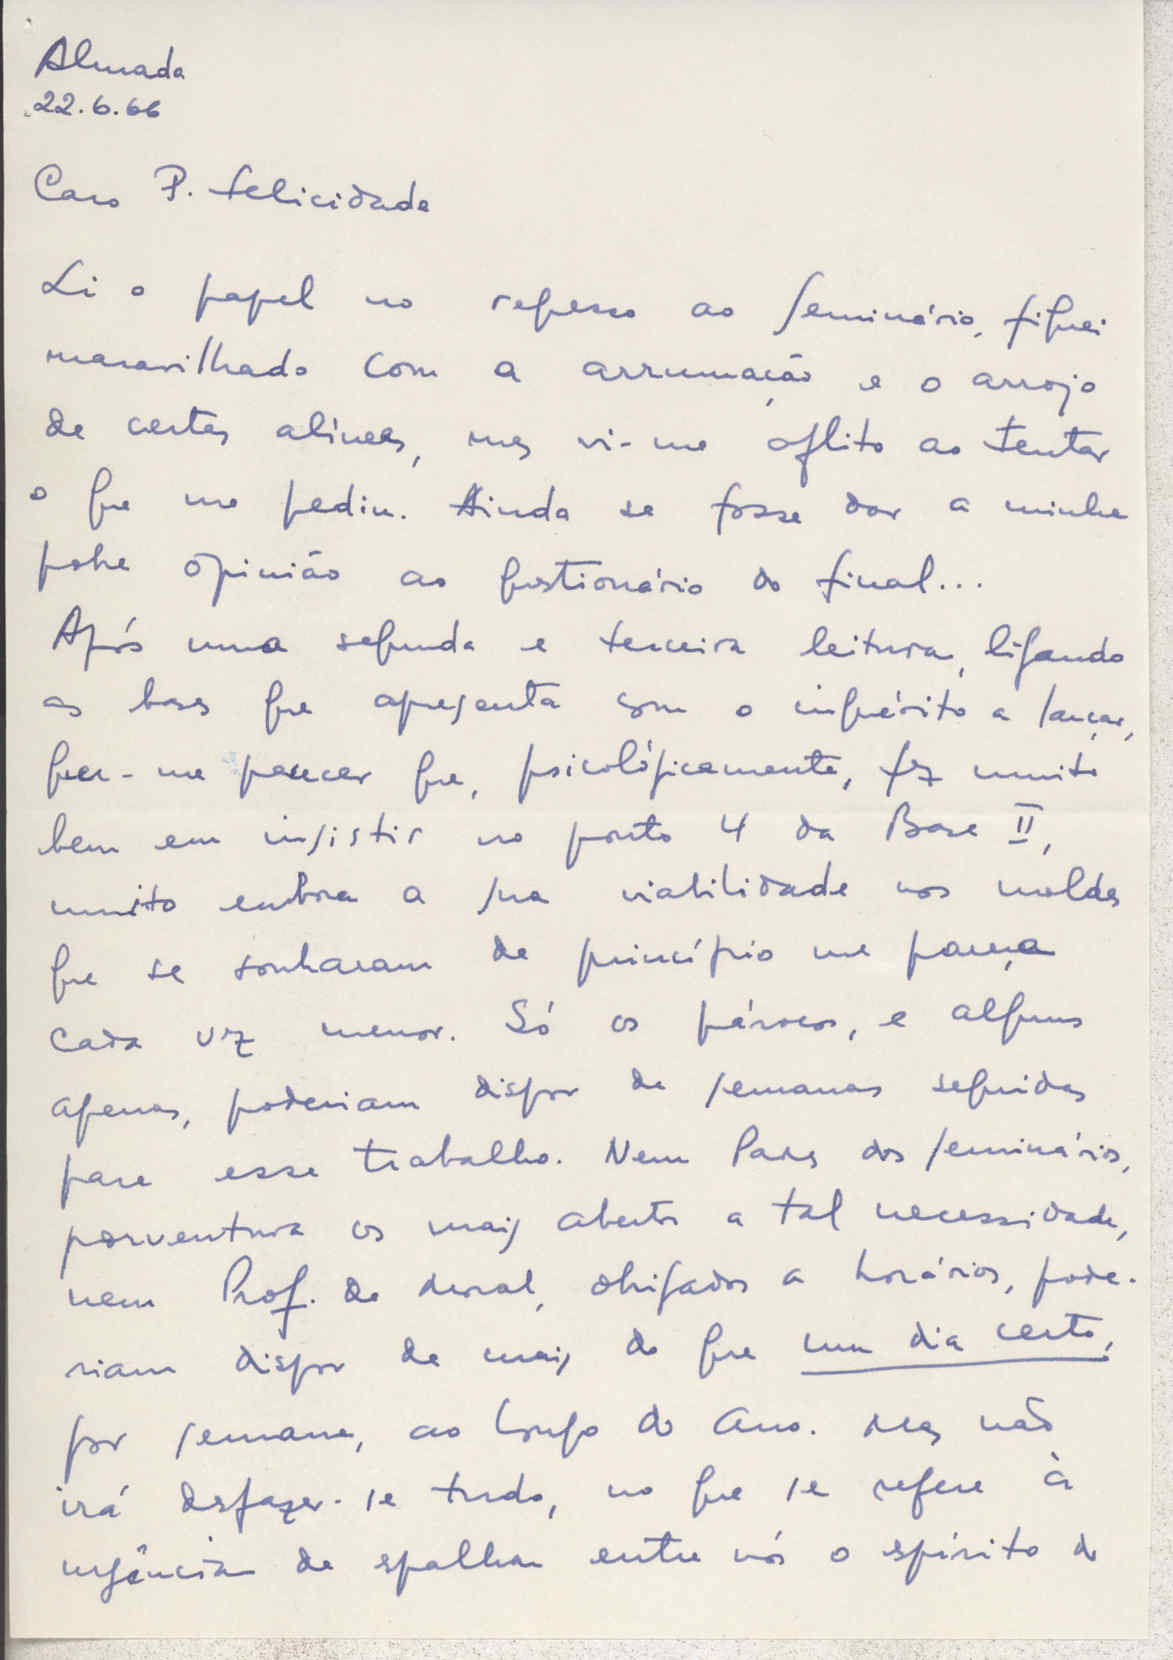 Almada
22.6.66
Caro P. Felicidade
Li o papel no regresso ao Seminário, fiquei
maravilhado com a arrumação e o arrojo
de certas alíneas, mas vi-me aflito ao tentar
o que me pediu. Ainda se fosse dar a minha
pobre opinião ao questionário do final...
Após uma segunda e terceira leitura, ligando
as bases que apresenta com o inquérito a lançar,
quer-me parecer que, psicológicamente, fez muito
bem em insistir no ponto 4 da Base II,
muito embora a sua viabilidade nos moldes
que se sonharam de princípio me pareça
cada vez menor. Só os párocos, e alguns
apenas, poderiam dispor de semanas seguidas
para esse trabalho. Nem Padres dos seminários,
porventura os mais abertos a tal necessidade,
nem Prof. de Moral, obrigados a horários, pode-
riam dispor de mais do que um dia certo,
por semana, ao longo do Ano. Mas não
irá desfazer-se tudo, no que se refere à
urgência de espalhar entre nós o espírito do